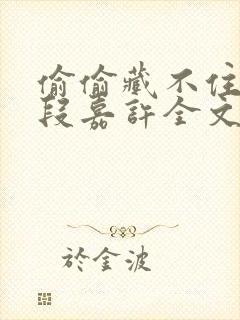 偷偷藏不住
段嘉許全文
於金波